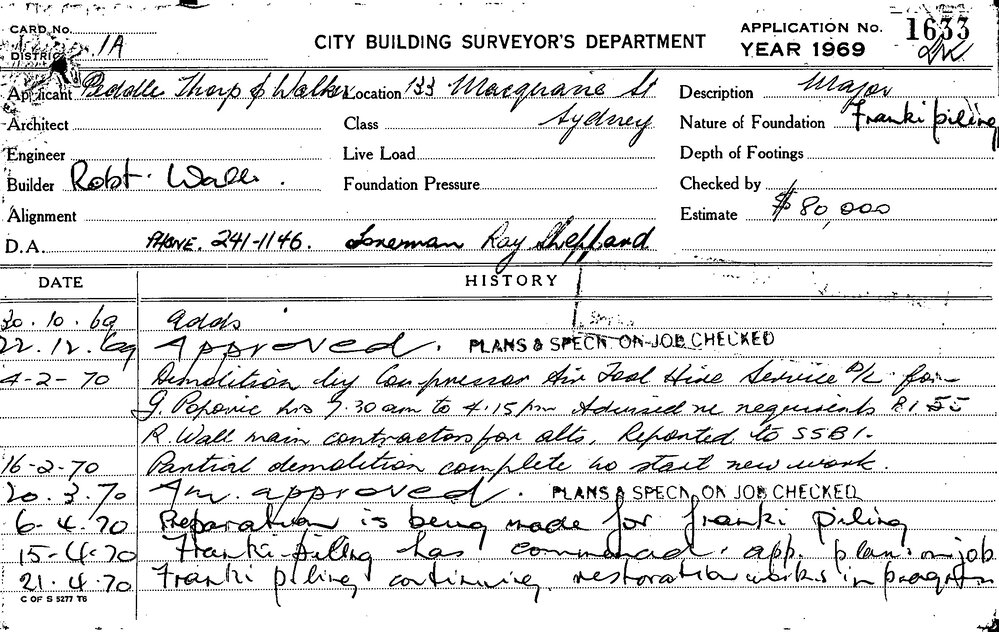 CARD No. 1A
CITY BUILDING SURVEYOR'S DEPARTMENT
APPLICATION No. 1633
DISTRICT
YEAR 1969
Applicant Peddle Thorp & Walker Location 133 Macquarie St Description Major
Architect Class Sydney Nature of Foundation Franki piling
Engineer Live Load Depth of Footings
Builder Robt. Wall. Foundation Pressure Checked by
Alignment Estimate $80,000
D.A. PHONE. 241-1146. Foreman Ray Sheppard
DATE HISTORY
30.10.69 adds
22.12.69 Approved. PLANS & SPECN ON JOB CHECKED
4-2-70 Demolition by Compressor Air Tool Hire Service P/L for
G. Popovic hrs 7.30 am to 4.15 pm Advised re requirements
R. Wall main contractors for alts. Reported to SSBI.
16-2-70 Partial demolition complete no start new work.
20.3.70 Am. approved. PLANS & SPECN ON JOB CHECKED
6-4.70 Preparation is being made for franki piling
15-4-70 Franki-pilling has commenced. app. plan. on job
21.4.70 Franki piling continuing restoration works in progress
C OF S 5277 T6